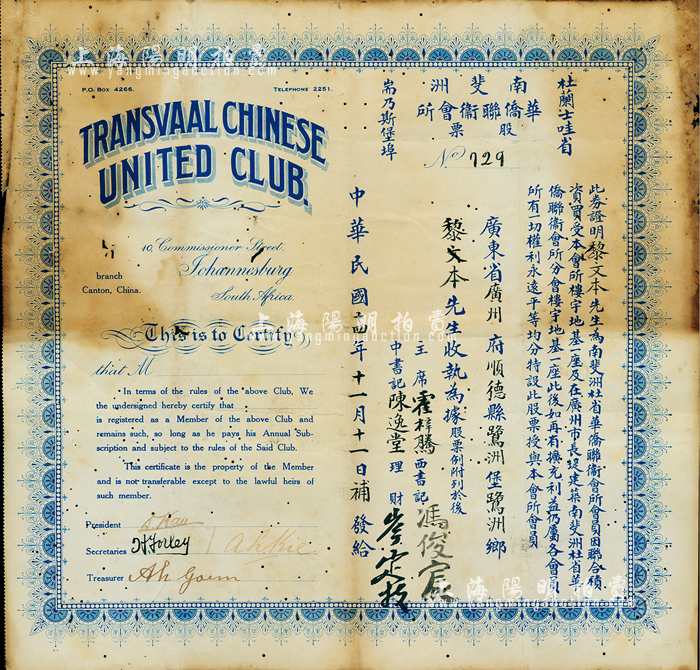 上海陽明拍賣
www.yangmingauction.com
P.O. Box 4266.
TELEPHONE 2251.
TRANSVAAL CHINESE
UNITED CLUB.
10, Commissioner Street.
Johannesburg
South Africa
branch
Canton, China.
This is to Certify
that M
In terms of the rules of the above Club, We
the undersigned hereby certify that
is registered as a Member of the above Club and
remains such, so long as he pays his Annual Sub-
scription and subject to the rules of the Said Club.
This certificate is the property of the Member
and is not transferable except to the lawful heirs of
such member.
President
Secretaries
Treasurer
杜蘭士哇省
南斐洲
華僑聯衞會所
股票
No 729
崙乃斯堡埠
此券證明黎文本先生為南斐洲杜省華僑聯衞會所會員因聯合積
資買受本會所樓宇地基一座及在廣州市長堤建築南斐洲杜省華
僑聯衞會所分會樓宇地基一座此後如再有擴充利益仍屬各會員
所有一切權利永遠平等均分特設此股票授與本會所會員
廣東省廣州府順德縣鷺洲堡鷺洲鄉
黎文本先生收執為據股票例附列於後
主席霍梓騰西書記馮俊宸
中書記陳逸堂理財
中華民國十四年十一月十一日補發給
上海陽明拍賣
www.yangmingauction.com
上海陽明拍賣